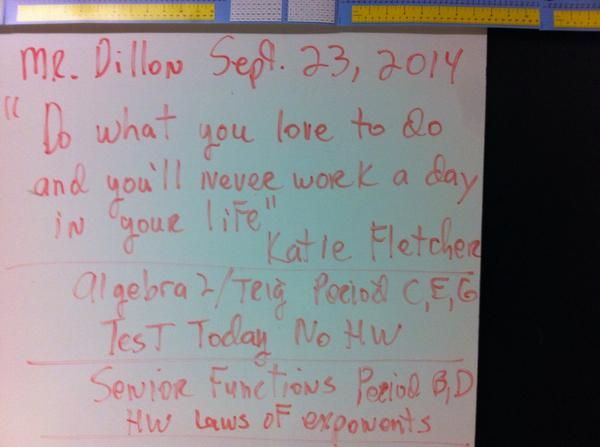 Mr. Dillon Sept. 23, 2014
"Do what you love to do
and you'll never work a day
in your life"
Katie Fletcher
Algebra 2/Trig Period C,E,G
Test Today No HW
Senior Functions Period B,D
HW Laws of exponents